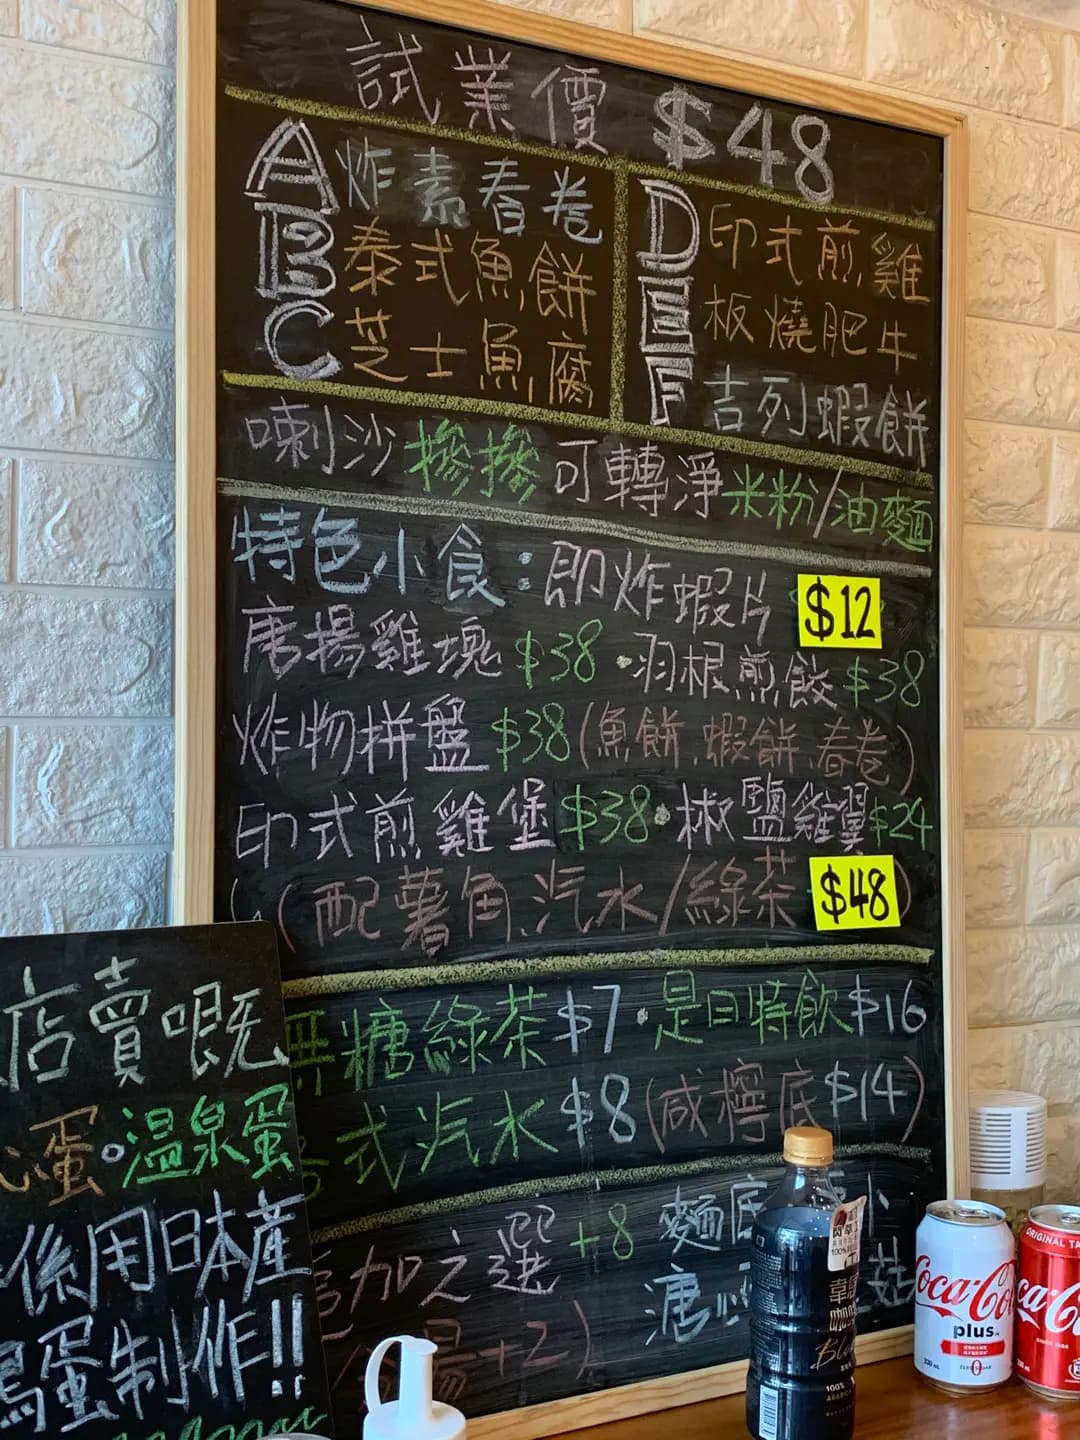 試業價 $48
A 炸素春卷
B 泰式魚餅
C 芝士魚腐
D 印式煎雞
E 板燒肥牛
F 吉列蝦餅
喇沙摻摻可轉淨米粉/油麵
特色小食：即炸蝦片 $12
唐揚雞塊 $38・羽根煎餃 $38
炸物拼盤 $38(魚餅.蝦餅.春卷)
印式煎雞堡 $38・椒鹽雞翼 $24
(配薯角.汽水/綠茶 $48)
無糖綠茶 $7・是日特飲 $16
式汽水 $8(咸檸底 $14)
加之選 +8
麵底
+2)
店賣嘅
蛋。温泉蛋
係用日本產
蛋制作!!
Coca-Cola
plus
ZERO SUGAR
330 mL
ORIGINAL TA
100%